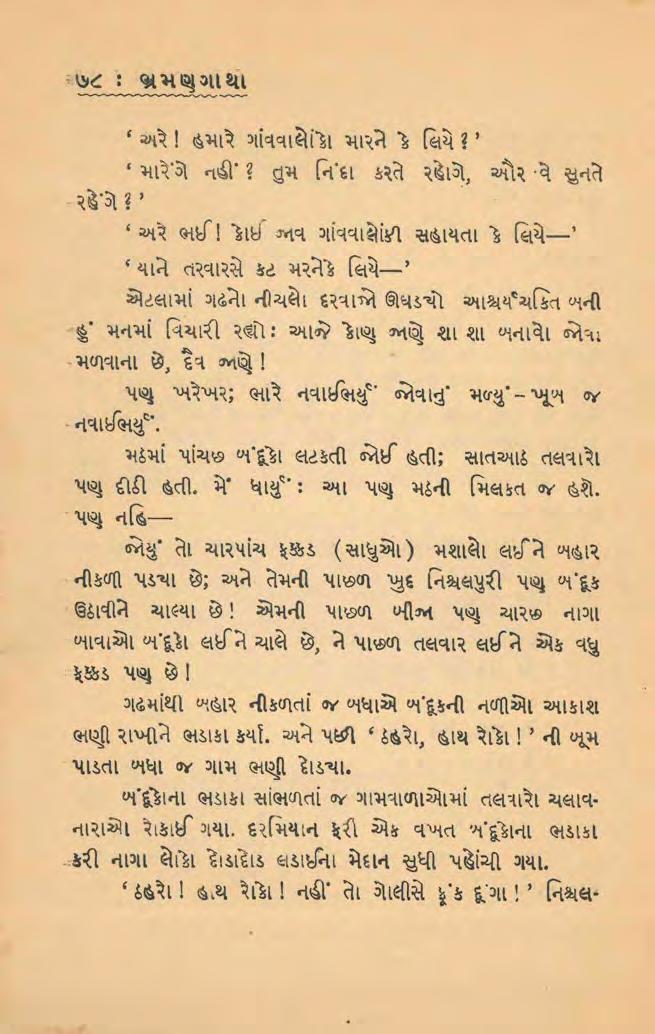 ૭૮ : ભ્રમણગાથા
‘ અરે ! હમારે ગાંવવાલોંકો મારને કે લિયે ? ’
‘ મારેંગે નહીં ? તુમ નિંદા કરતે રહોગે, ઔર વે સુનતે
રહેંગે ? ’
‘ અરે ભઈ ! કોઈ જાવ ગાંવવાલોંકી સહાયતા કે લિયે—’
‘ યાને તરવારસે કટ મરનેકે લિયે—’
એટલામાં ગઢનો નીચલો દરવાજો ઊઘડચો આશ્ચર્યચકિત બની
હું મનમાં વિચારી રહ્યો : આજે કોણ જાણે શા શા બનાવો જોવા
મળવાના છે, દૈવ જાણે !
પણ ખરેખર; ભારે નવાઈભર્યું જોવાનું મળ્યું – ખૂબ જ
નવાઈભર્યું.
મઠમાં પાંચછ બંદૂકો લટકતી જોઈ હતી; સાતઆઠ તલવારો
પણ દીઠી હતી. મેં ધાર્યું : આ પણ મઠની મિલકત જ હશે.
પણ નહિ—
જોયું તો ચારપાંચ ફક્કડ (સાધુઓ) મશાલો લઈને બહાર
નીકળી પડયા છે; અને તેમની પાછળ ખુદ નિશ્ચલપુરી પણ બંદૂક
ઉઠાવીને ચાલ્યા છે ! એમની પાછળ બીજા પણ ચારછ નાગા
બાવાઓ બંદૂકો લઈને ચાલે છે, ને પાછળ તલવાર લઈને એક વધુ
ફક્કડ પણ છે !
ગઢમાંથી બહાર નીકળતાં જ બધાએ બંદૂકની નળીઓ આકાશ
ભણી રાખીને ભડાકા કર્યા. અને પછી ‘ ઠહરો, હાથ રોકો ! ’ ની બૂમ
પાડતા બધા જ ગામ ભણી દોડયા.
બંદૂકોના ભડાકા સાંભળતાં જ ગામવાળાઓમાં તલવારો ચલાવ-
નારાઓ રોકાઈ ગયા. દરમિયાન ફરી એક વખત બંદૂકોના ભડાકા
કરી નાગા લોકો દોડાદોડ લડાઈના મેદાન સુધી પહોંચી ગયા.
‘ ઠહરો ! હાથ રોકો ! નહીં તો ગોલીસે ફૂંક દૂંગા ! ’ નિશ્ચલ-